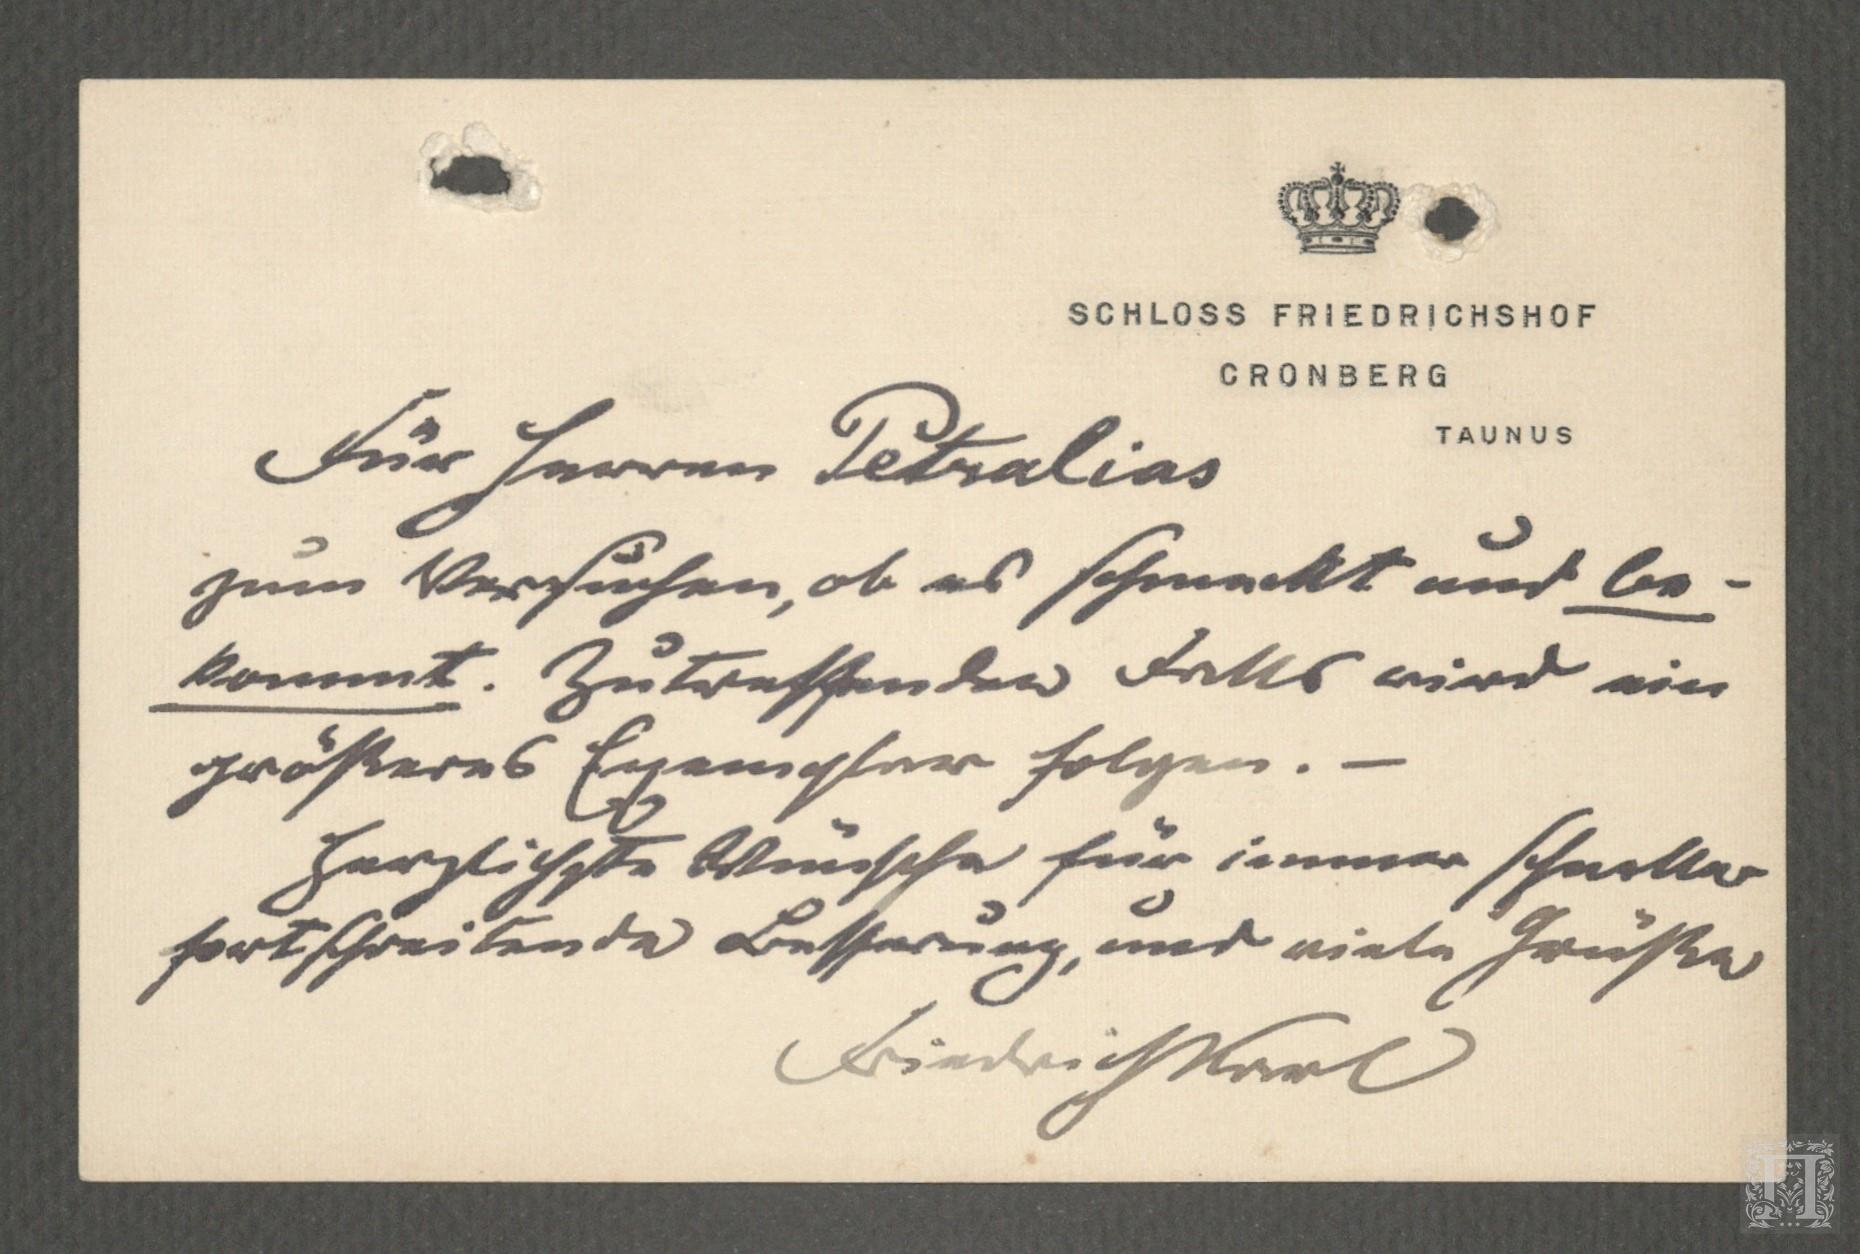 SCHLOSS FRIEDRICHSHOF
CRONBERG
TAUNUS
Für Herren Petralias
zum Versuchen, ob es schmeckt und be-
kommt. Zutreffenden Falls wird ein
größeres Exemplar folgen. —
Herzlichste Wünsche für immer schneller
fortschreitende Besserung, und viele Grüße
Friedrich Karl